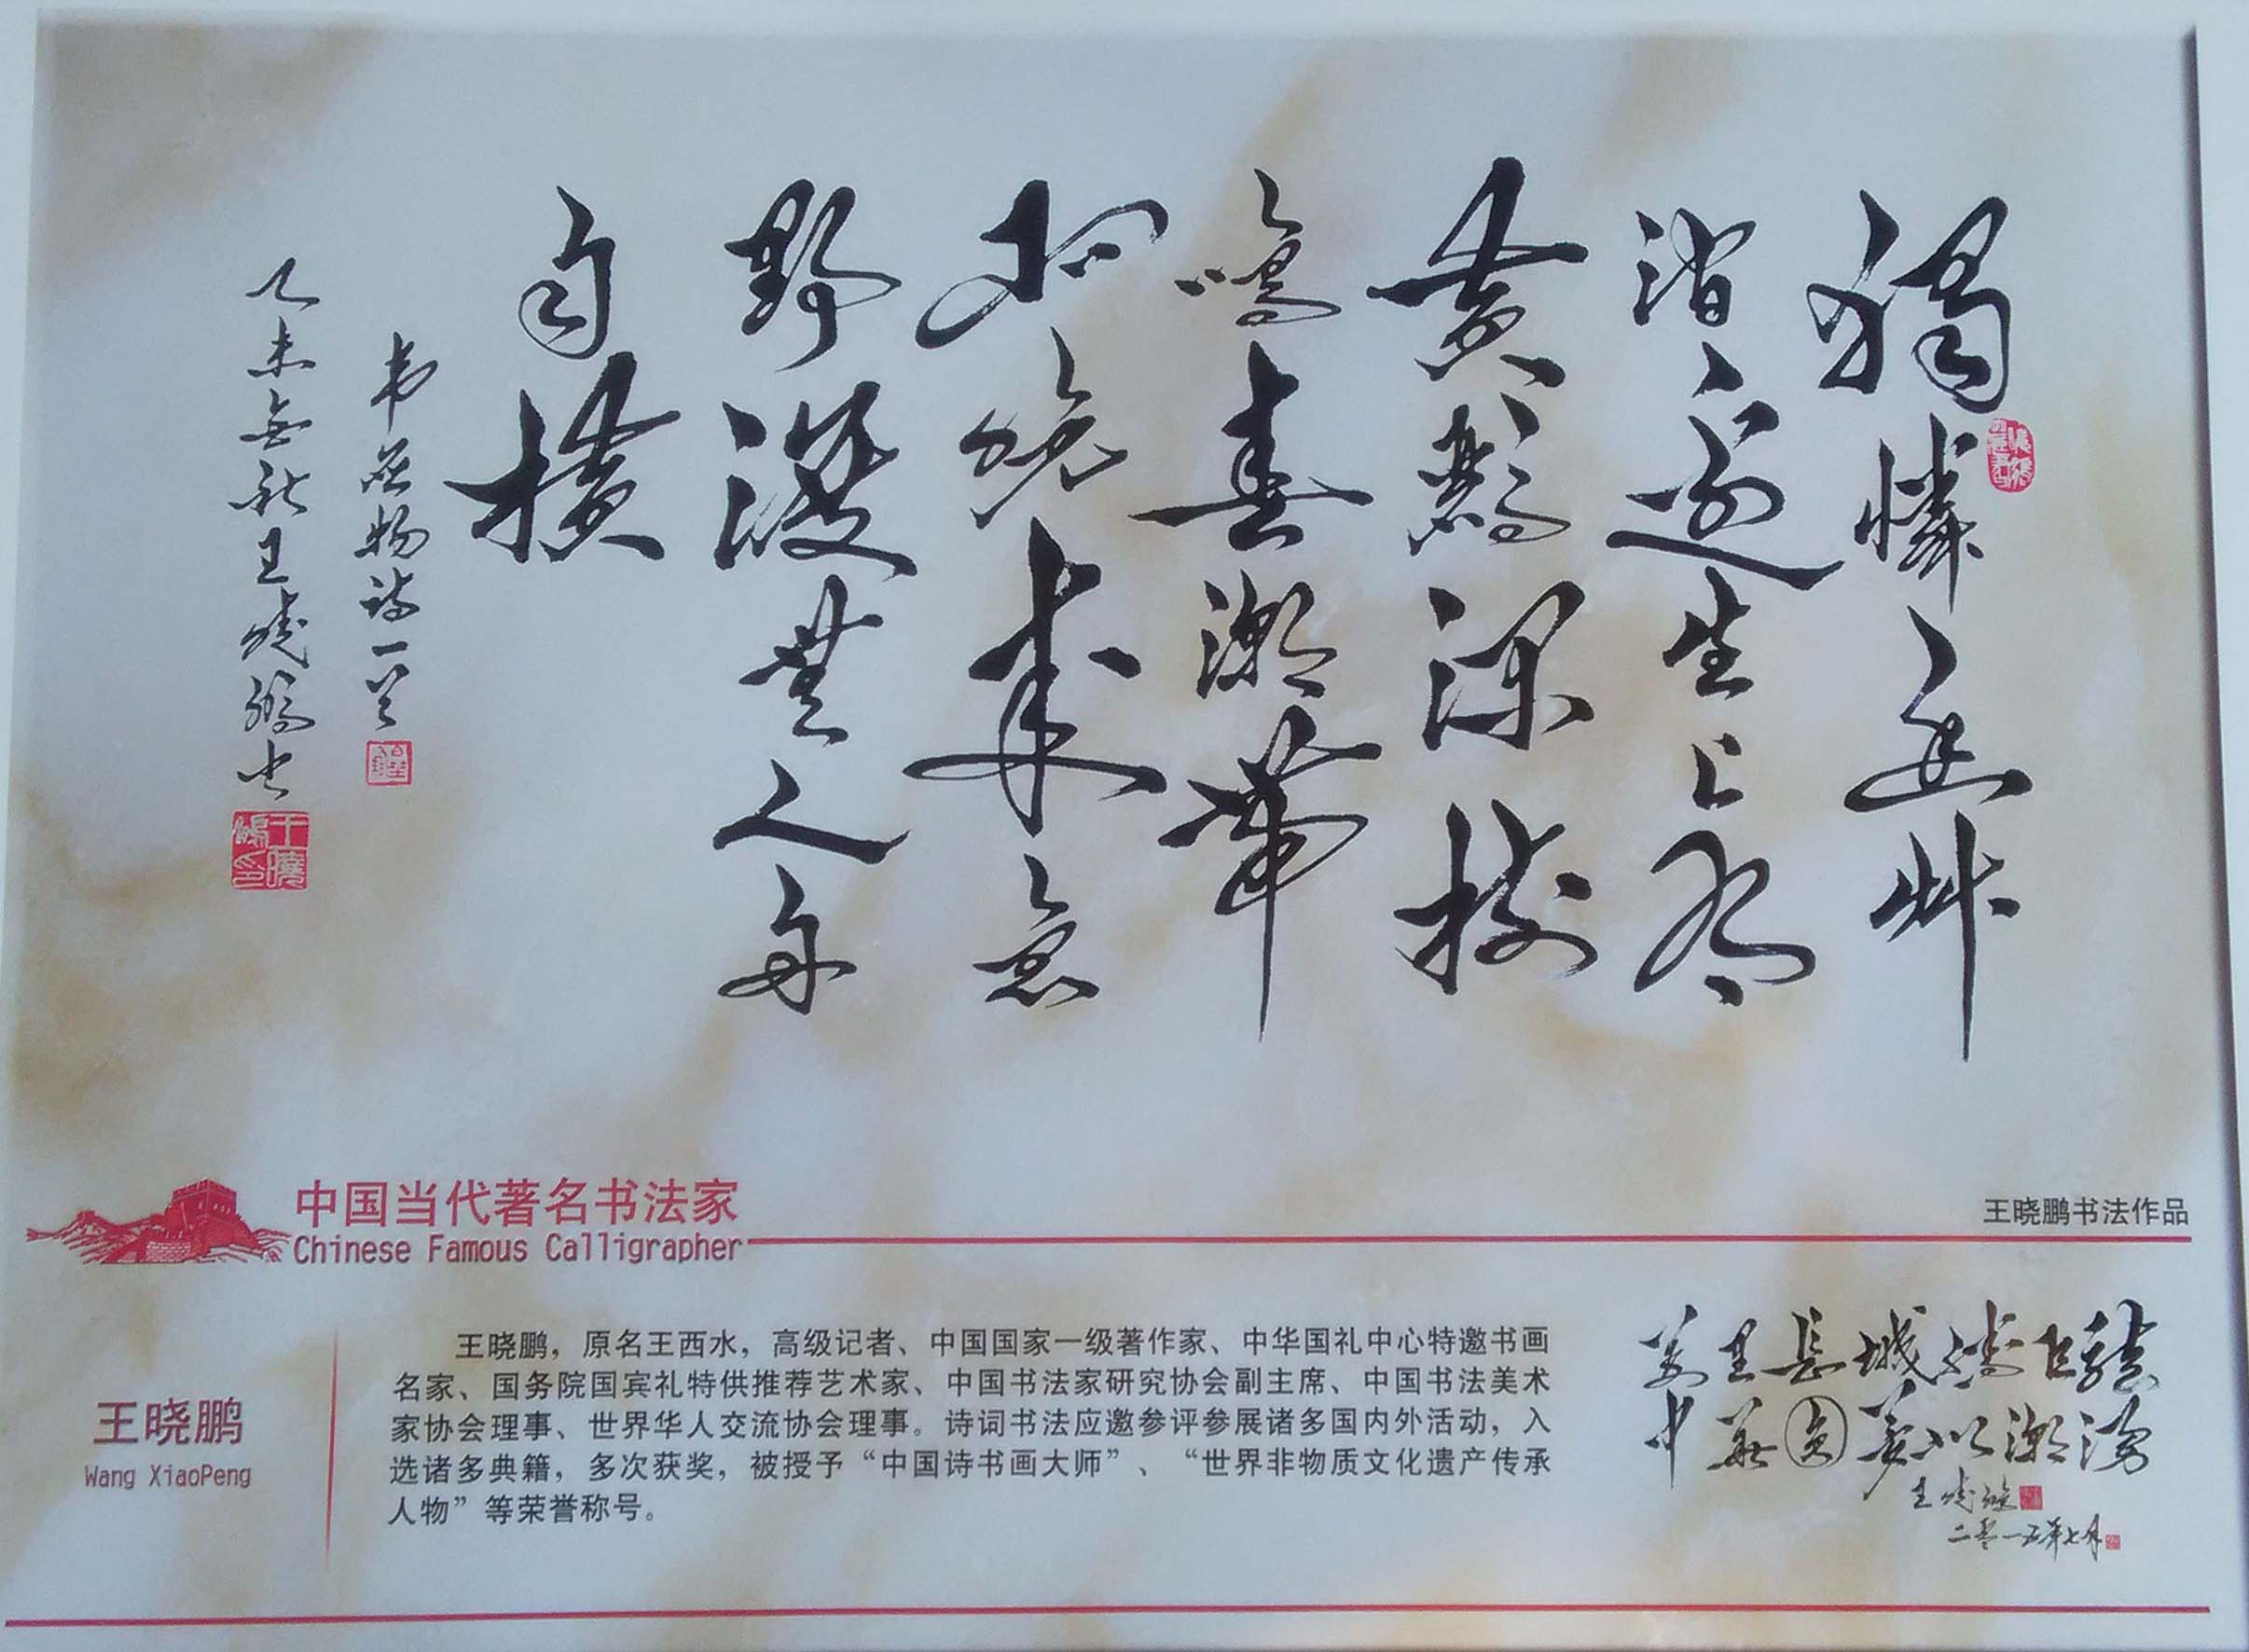 獨憐幽艸
澗邊生上有
黃鸝深樹
鳴春潮帶
雨晚来急
野渡無人舟
自横
韦应物诗一首
乙未 王晓鹏书
王曉鵬印
中国当代著名书法家
Chinese Famous Calligrapher
王晓鹏书法作品
王晓鹏
Wang XiaoPeng
王晓鹏，原名王西水，高级记者、中国国家一级著作家、中华国礼中心特邀书画
名家、国务院国宾礼特供推荐艺术家、中国书法家研究协会副主席、中国书法美术
家协会理事、世界华人交流协会理事。诗词书法应邀参评参展诸多国内外活动，入
选诸多典籍，多次获奖，被授予“中国诗书画大师”、“世界非物质文化遗产传承
人物”等荣誉称号。
萬里長城騰巨龍
中華圓夢似潮湧
王晓鹏
二零一五年七月